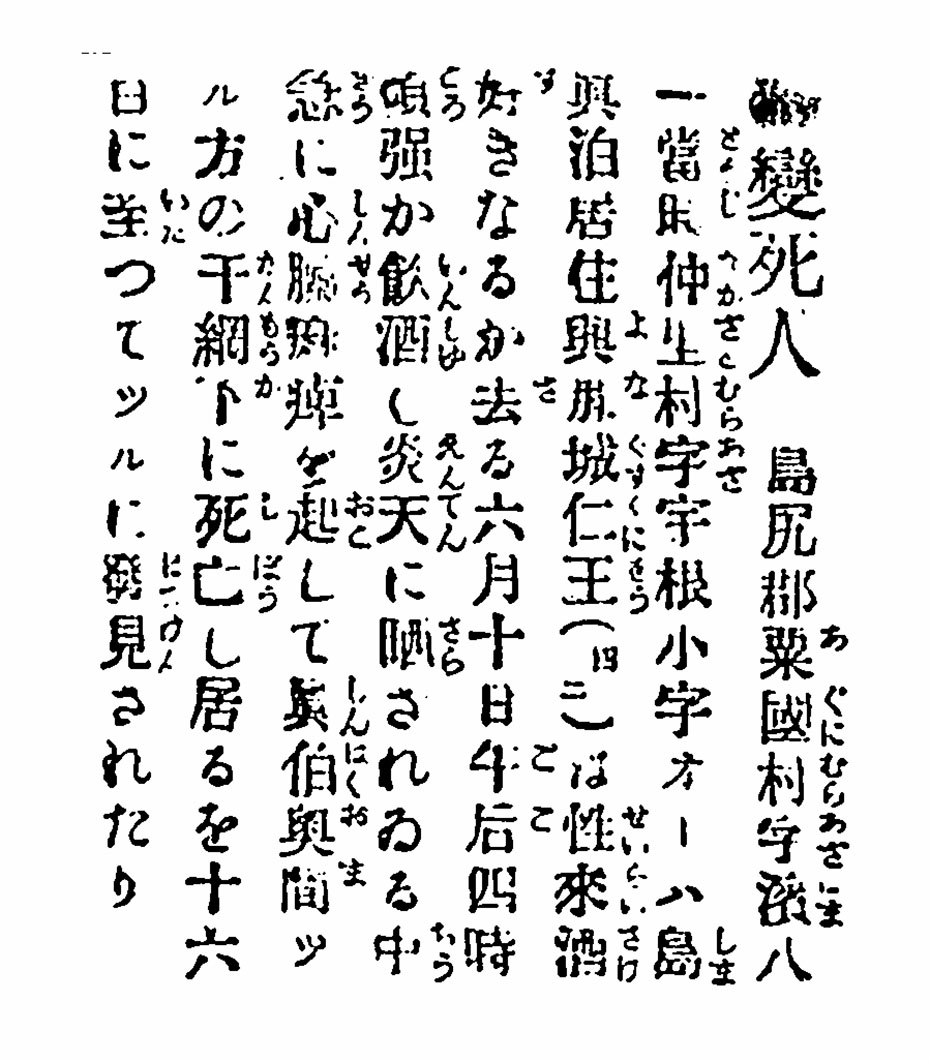 變死人 島尻郡粟國村字濱八
一當時仲里村字宇根小字オーハ島
與泊居住與那城仁王(四二)は性來酒
好きなるが去る六月十日午后四時
頃强か飮酒し炎天に晒されゐる中
急に心臟痲痺を起して眞伯奥間ツ
ル方の干網下に死亡し居るを十六
日に至つてツルに發見された
り